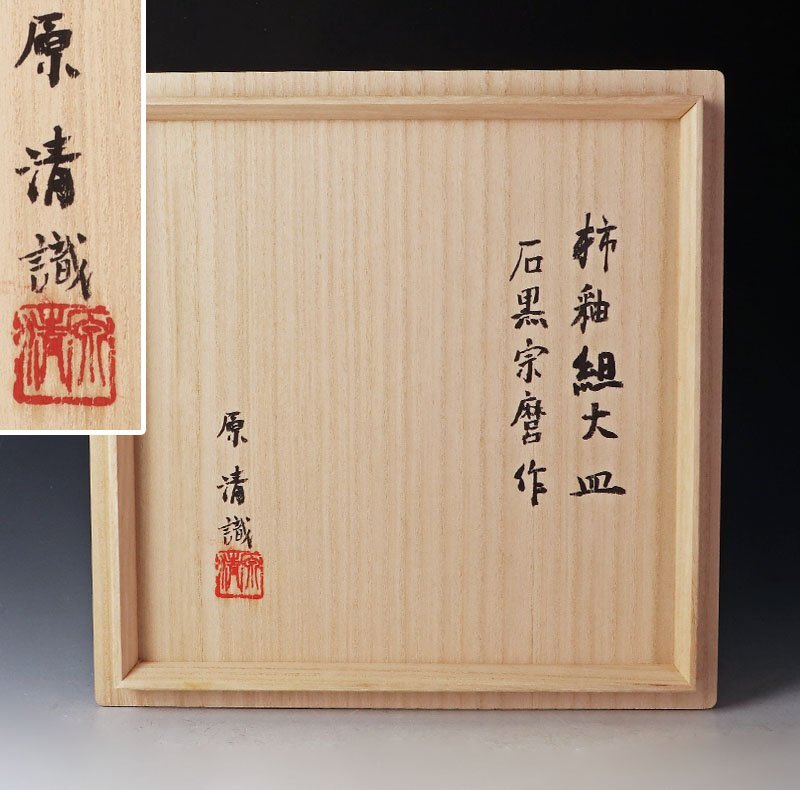 柿釉組大皿
石黒宗麿作
原清識
原清
原清識
原清